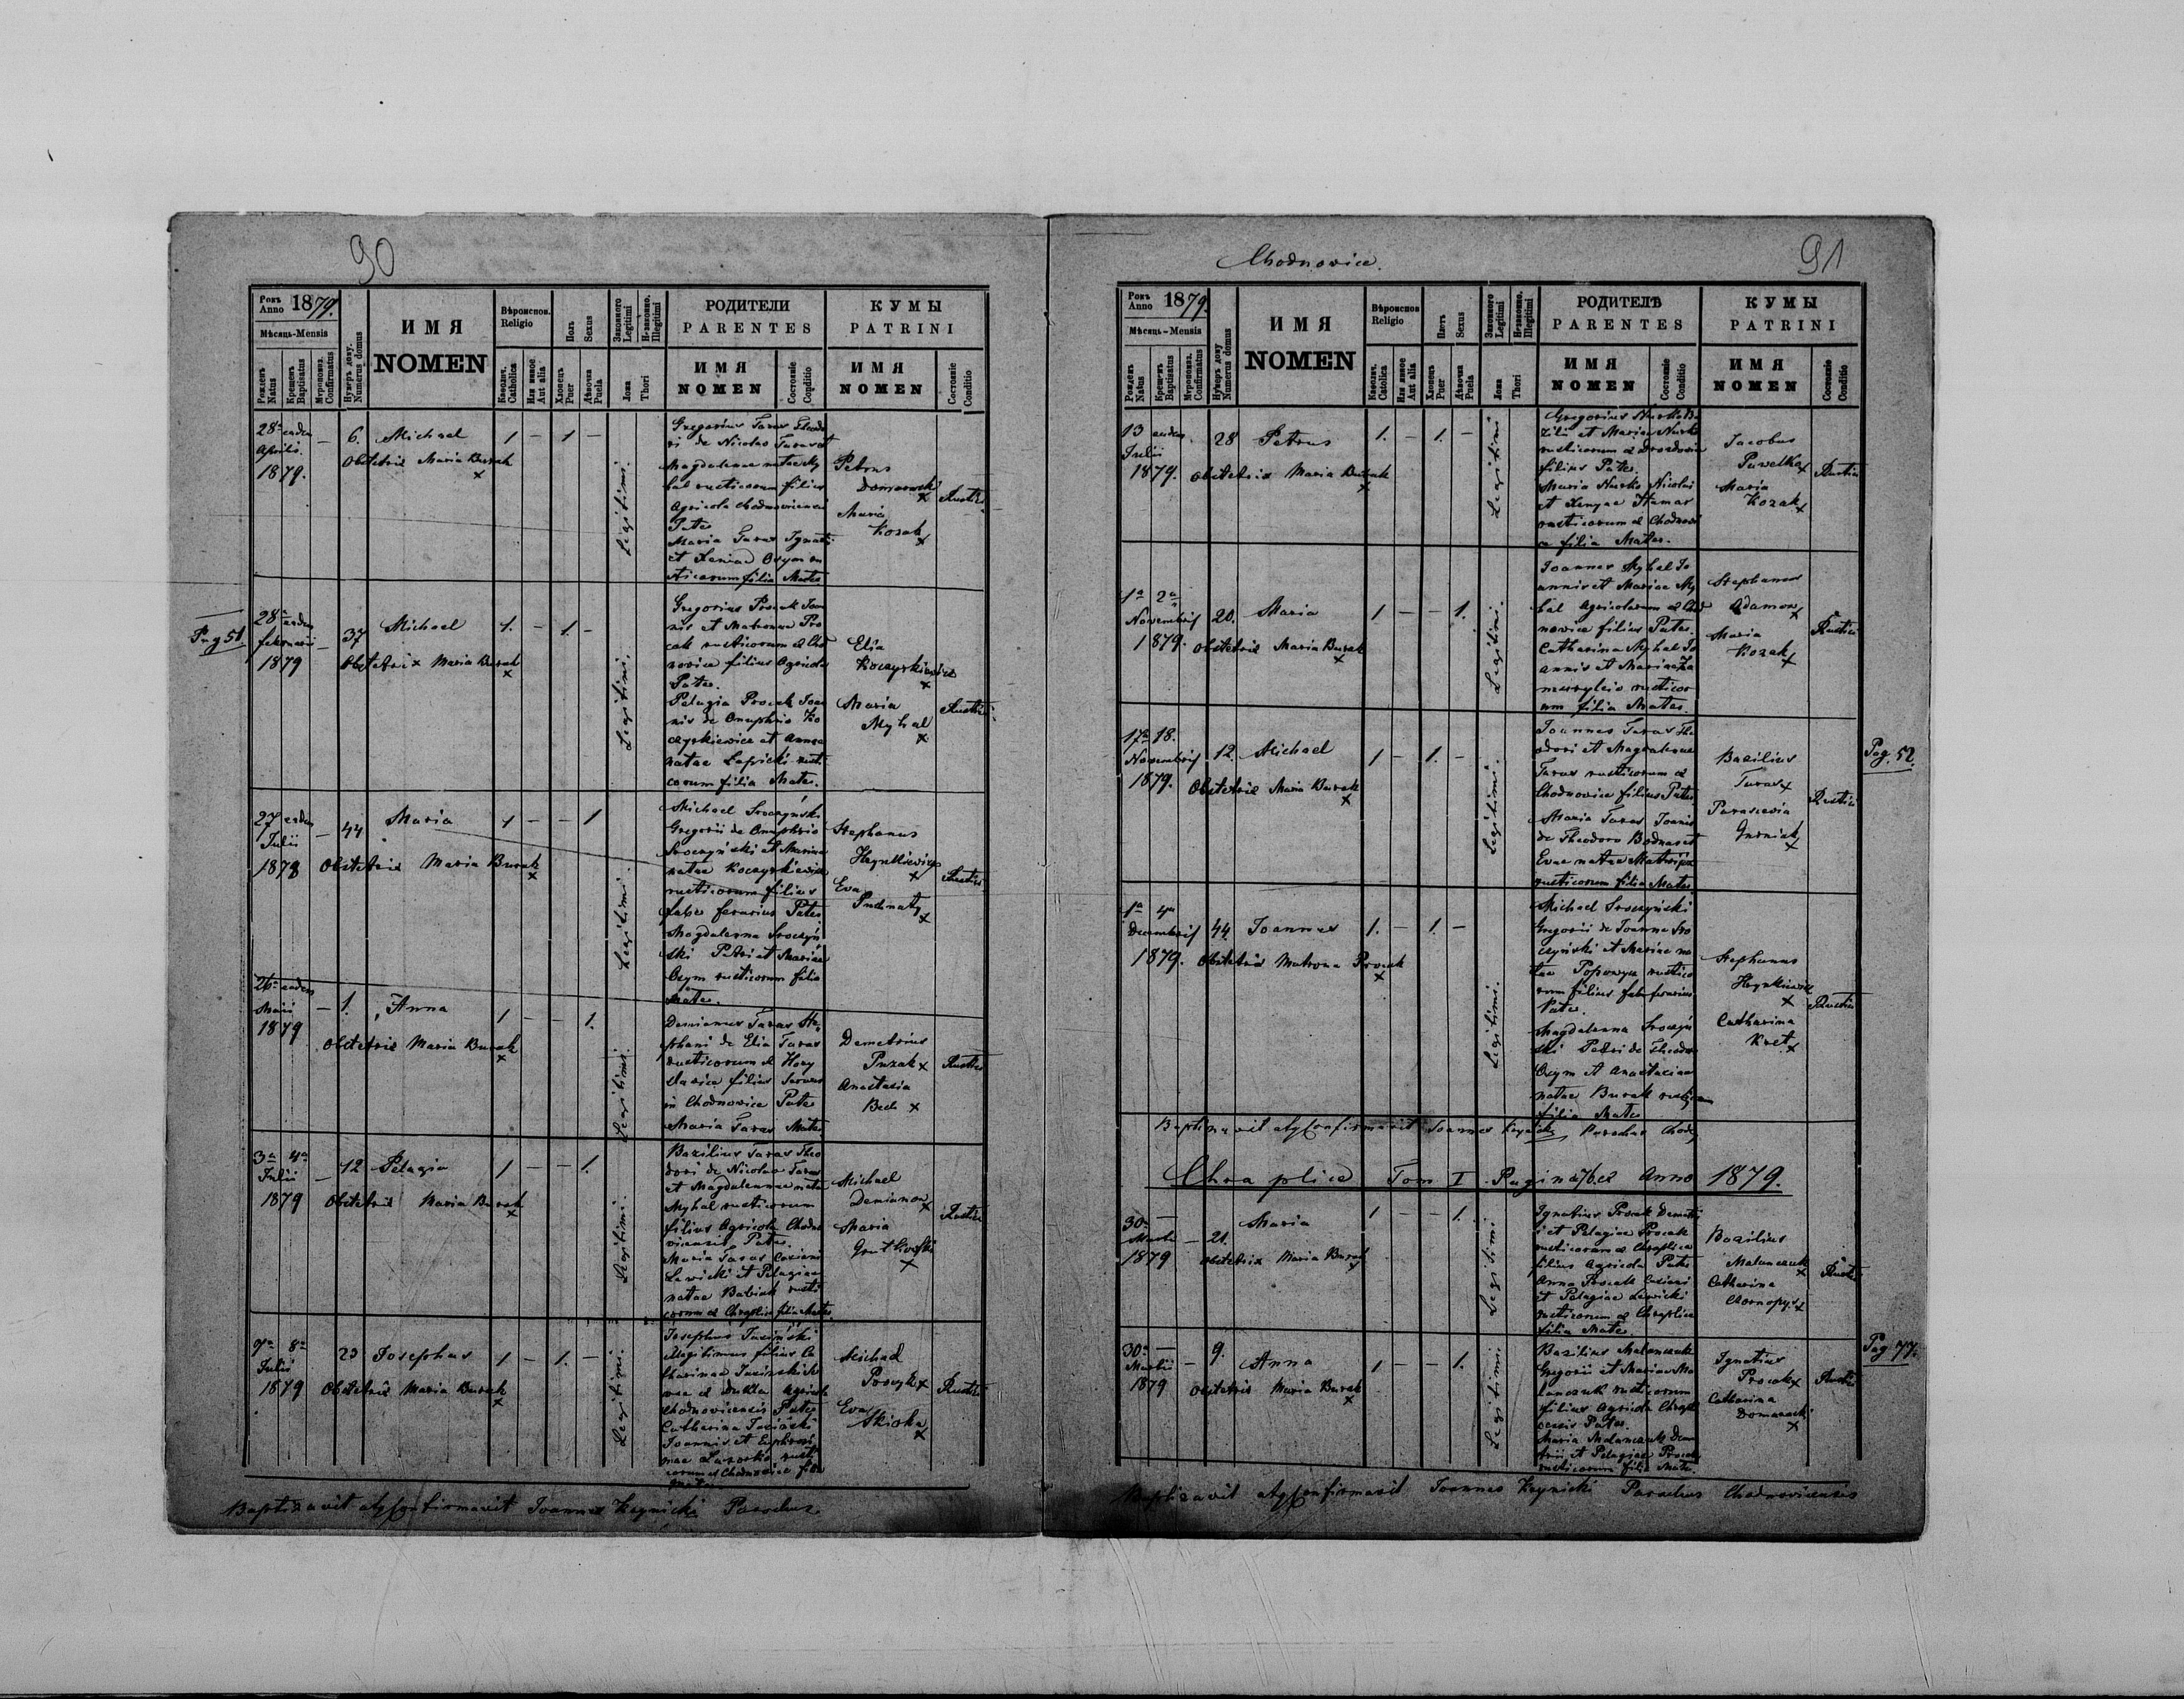 90
Рокъ Anno 1879.
Мѣсяць-Mensis
Рожденъ Natus
Крещенъ Baptisatus
Мѵропомаз. Confirmatus
Нумеръ дому. Numerus domus
ИМЯ
NOMEN
Вѣроиспов. Religio
Католич. Catholica
Или иное Aut alia
Полъ Sexus
Хлопецъ Puer
Дѣвочка Puela
Законного Legitimi
Н-законно. Illegitimi
Ложа Thori
РОДИТЕЛИ
PARENTES
ИМЯ
NOMEN
Состояніе Conditio
КУМЫ
PATRINI
ИМЯ
NOMEN
Состояніе Conditio
28a eadem
Aprilis
1879.
6. Michael
Obstetrix Maria Burak
x
1 – 1 –
Legitimi.
Gregorius Taras Theodo
ri de Nicolao Taras et
Magdalenae natae My
hal rusticorum filius
Agricola Chodnovicensis
Pater
Maria Taras Ignati
et Xeniae Oczym ru
sticorum filia Mater
Petrus
Domarecki
x
Maria
Kozak
x
Rustici
Pag 51
28a eadem
februarii
1879
37 Michael
Obstetrix Maria Burak
x
1. – 1. –
Legitimi.
Gregorius Procak Joan
nis et Matronae Pro
cak rusticorum ex Chod
novice filius Agricola
Pater.
Pelagia Procak Joan
nis de Onuphrio Ko
czyrkiewicz et Annae
natae Lapicki rusti
corum filia Mater.
Elia
Koczyrkiewicz
x
Maria
Myhal
x
Rustici
27 eadem
Julii
1878
44 Maria
Obstetrix Maria Burak
x
1 – – 1
Legitimi.
Michael Sroczyński
Gregorii de Onuphrio
Sroczyński et Marina
natae Koczyrkiewicz
rusticorum filius
faber ferarius Pater
Magdalena Sroczyń
ski Petri et Mariae
Oczym rusticorum filia
Mater.
Stephanus
Hrynkiewicz
x
Eva
x
Rustici
26a eadem
Maii
1879
1. Anna
Obstetrix Maria Burak
x
1 – – 1.
Legitimi.
Demianus Taras Ste
phani de Elia Taras
rusticorum ex
filius
in Chodnovice Pater
Maria Taras Mater
Demetrius
Puzak x
Anastasia
Bech x
Rustici
3a 4a
Julii
1879
12 Pelagia
Obstetrix Maria Burak
x
1 – – 1.
Legitimi.
Basilius Taras Theo
dori de Nicolao Taras
et Magdalenae nata
Myhal rusticorum
filius Agricola Chodno
vicensis Pater.
Maria Taras Casiani
Lewicki et Pelagiae
natae Babiak rusti
corum ex Chraplice filia Mater.
Michael
Demianow
x
Maria
x
Rustici
7a 8a
Julii
1879
23 Josephus
Obstetrix Maria Burak
x
1 – 1. –
Legitimi.
Josephus
Illegitimus filius Ca
tharinae
ex Dukla Agricola
Chodnovicensis Pater
Catharina
Joannis et Euphrosi
nae rusti
corum ex Chodnovice filia
Mater
Michael
x
Eva
x
Rustici
Baptisavit atq Confirmavit Joannes Keynicki Parochus
Chodnovice.
91
Рокъ Anno 1879.
Мѣсяць-Mensis
Рожденъ Natus
Крещ-нъ Baptisatus
Мѵропомаз. Confirmatus
Нумеръ дому Numerus domus
ИМЯ
NOMEN
Вѣроиспов Religio
Католич. Catolica
Или иное Aut alia
Sexus
Хлопецъ Puer
Дѣвочка Puela
Законного Legitimi
Н-законно. Illegitimi
Ложа Thori
РОДИТЕЛѢ
PARENTES
ИМЯ
NOMEN
Состояніе Conditio
КУМЫ
PATRINI
ИМЯ
NOMEN
Состояніе Conditio
13 eadem
Julii
1879.
28 Petrus
Obstetrix Maria Burak
x
1. – 1. –
Legitimi
Gregorius Nurko Ba
zilii et Maria Nurko
rusticorum ex
filius Pater.
Maria Nurko Nicolai
et
rusticorum ex Chodnovi
ce filia Mater.
Jacobus
Pawelko
x
Maria
Kozak
x
Rustici
1a 2a
Novembris
1879.
20. Maria
Obstetrix Maria Burak
x
1 – – 1.
Legitimi.
Joannes Myhal Jo
annis et Mariae My
hal Agricolarum ex Chod
novice filius Pater.
Catharina Myhal Jo
annis et Mariae
rusticor
um filia Mater.
Stephanus
Adamow
x
Maria
Kozak
x
Rustici
17a 18.
Novembris
1879.
12. Michael
Obstetrix Maria Burak
x
1 – 1. –
Legitimi.
Joannes Taras The
odori et Magdalenae
Taras rusticorum ex
Chodnovice filius Pater
Maria Taras Joannis
de Theodoro Bodnar et
Evae natae
rusticorum filia Mater
Basilius
Taras x
Parascevia
x
Rustici
Pag. 52.
1a 4a
Decembris
1879.
44. Joannes
Obstetrix Matrona Procak
x
1. – 1. –
Legitimi.
Michael Sroczyński
Gregorii de Joanne Sro
czyński et Mariae na
tae Popowycz rustico
rum filius faber ferarius
Pater.
Magdalena Sroczyń
ski Petri de Theodoro
Oczym et Anastasiae
natae Burak
filia Mater
Stephanus
Hrynkiewicz
x
Catharina
Kret
x
Rustici
Baptisavit atq Confirmavit Joannes Keynicki Parochus Chodn
Chraplice Tom I. Pagina 76. ex Anno 1879.
30a –
Martii
1879
21. Maria
Obstetrix Maria Burak
x
1 – – 1.
Legitimi
Ignatius Procak Demetri
i et Pelagiae Procak
rusticorum ex Chraplice
filius Agricola Pater
Anna Procak Casiani
et Pelagiae Lewicki
rusticorum ex Chraplice
filia Mater
Basilius
Malanczuk
x
Catharina
Chornopys x
Rustici
30a –
Martii
1879
9. Anna
Obstetrix Maria Burak
x
1 – – 1.
Legitimi.
Basilius Malanczuk
Gregorii et Mariae Ma
lanczuk rusticorum
filius Agricola Chrapli
censis Pater.
Maria Malanczuk Deme
trii et Pelagiae Procak
rusticorum filia Mater.
Ignatius
Procak x
Catharina
Domarecki
x
Rustici
Pag. 77.
Baptisavit atq Confirmavit Joannes Keynicki Parochus Chodnovicensis